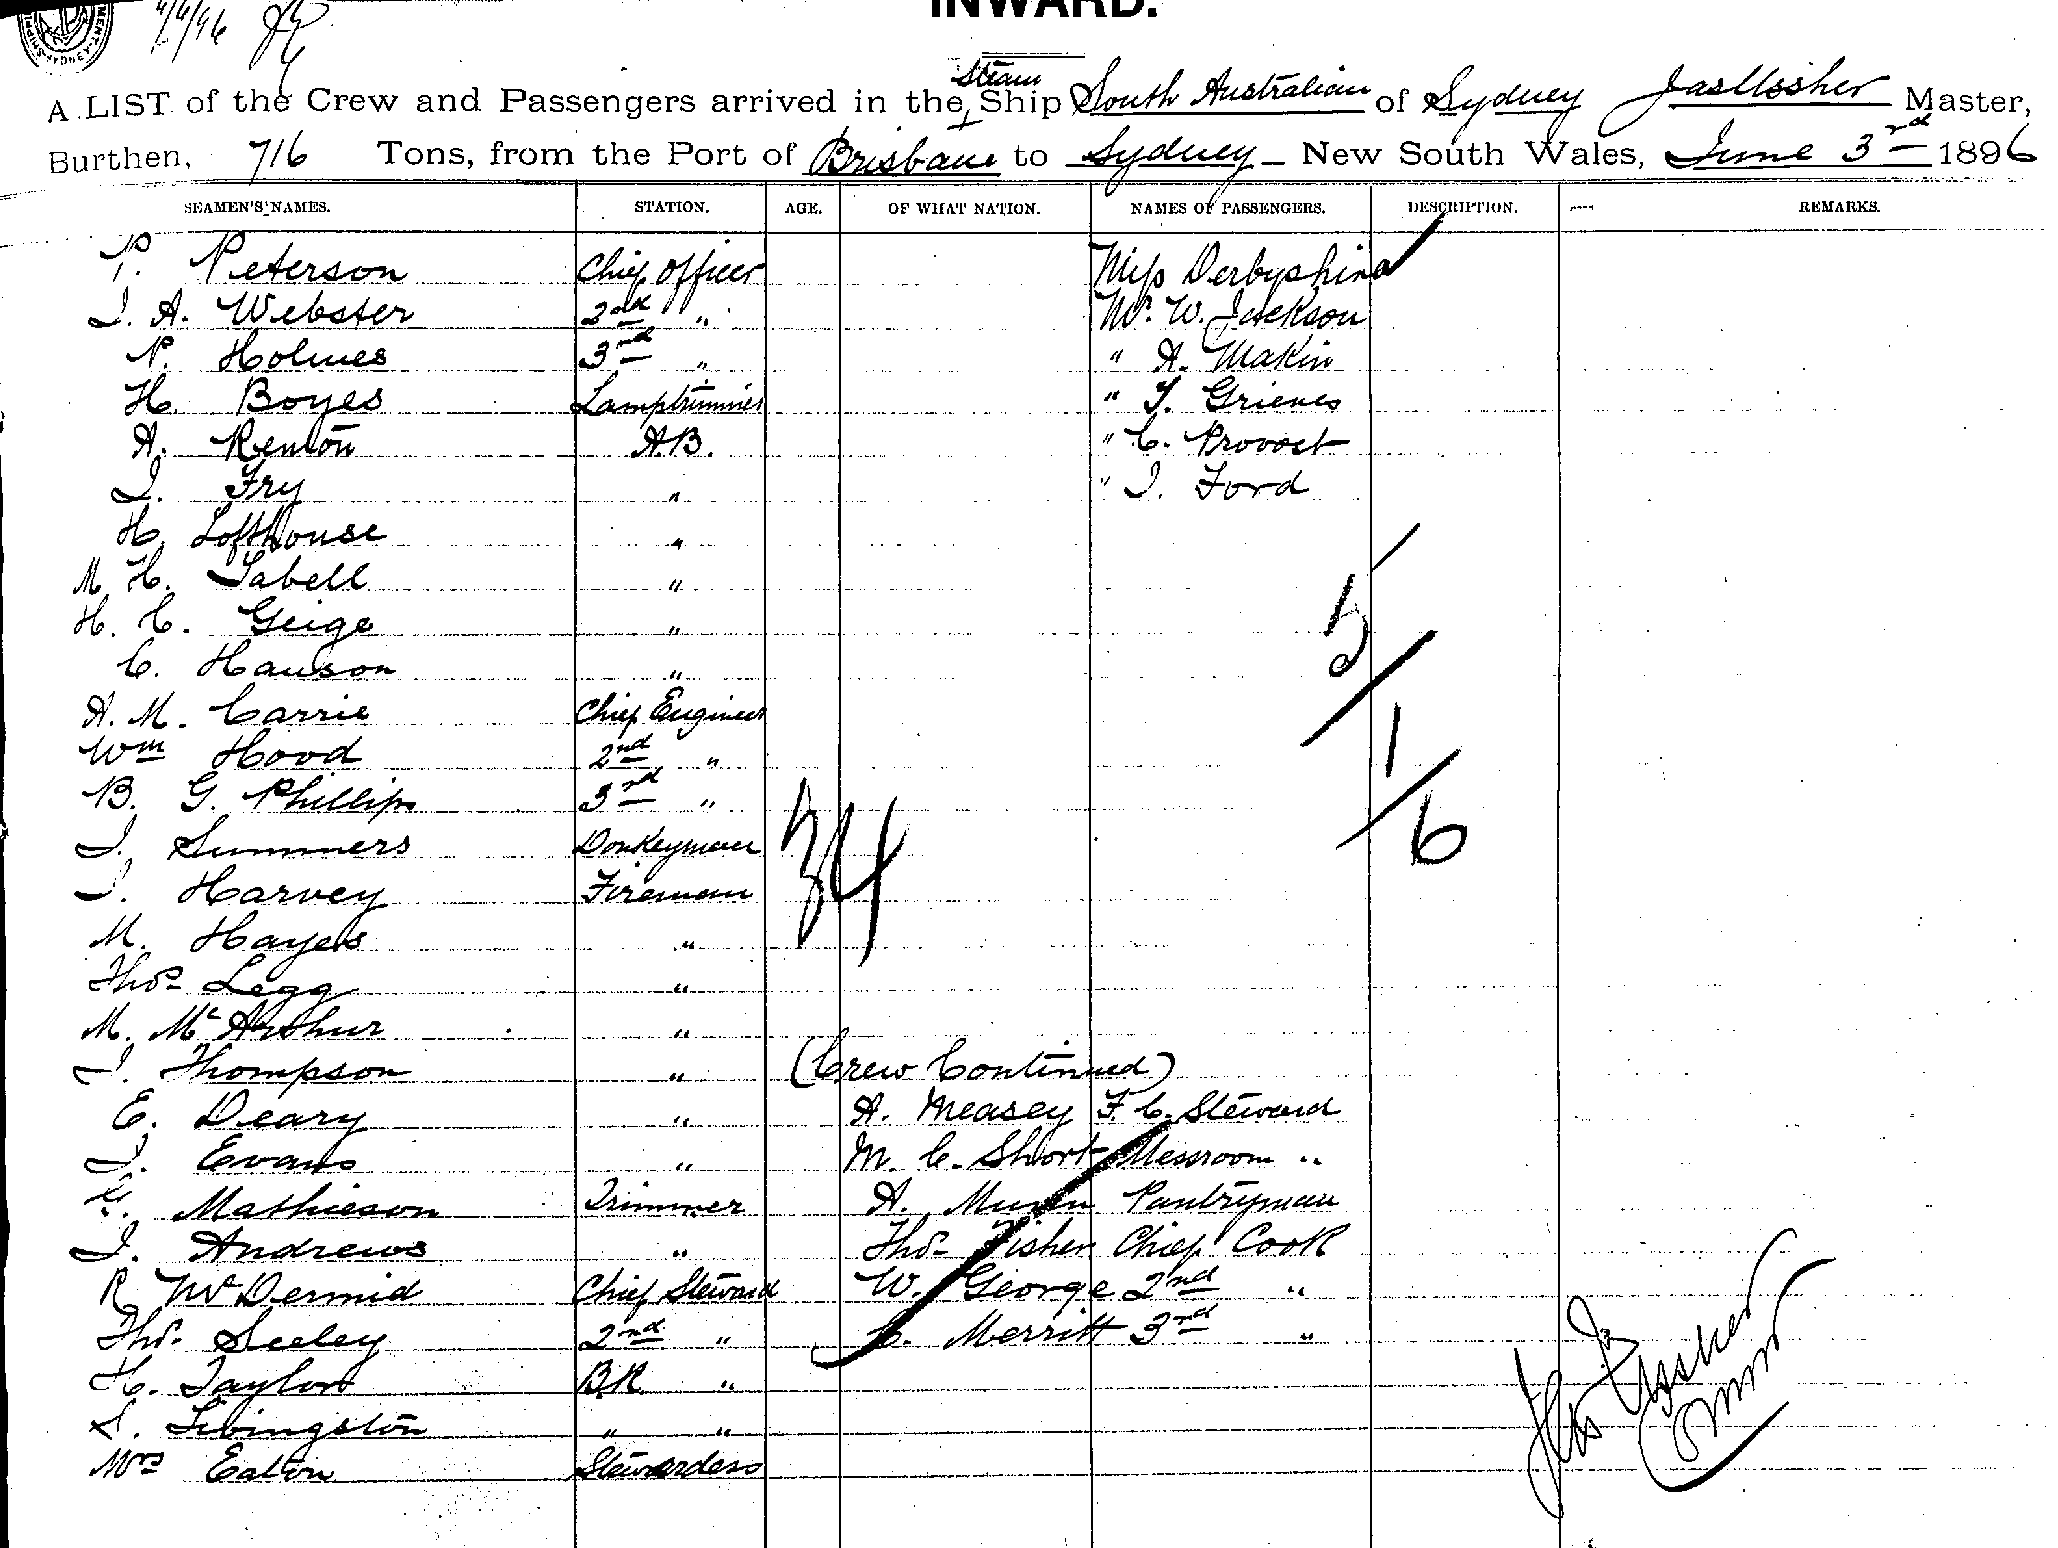 4/6/96
INWARD.
A LIST of the Crew and Passengers arrived in the Steam Ship South Australian of Sydney Jas Ussher Master,
Burthen, 716 Tons, from the Port of Brisbane to Sydney New South Wales, June 3rd 1896
SEAMEN'S NAMES. STATION. AGE. OF WHAT NATION. NAMES OF PASSENGERS. DESCRIPTION. REMARKS.
P. Peterson Chief Officer Miss Derbyshire
J. A. Webster 2nd " Mr. W. Jackson
P. Holmes 3rd " " A. Makin
H. Boyes Lamptrimmer " T. Grieves
A. Renton A.B. " C. Provost
J. Fry " " J. Ford
H. Lofthouse "
M H. Tabell "
H. C. Geige "
C. Hanson "
5
A. M. Carrie Chief Engineer
Wm Hood 2nd "
1
B. G. Phillips 3rd "
J. Summers Donkeyman
6
34
J. Harvey Fireman
M. Hayes "
Thos Legg "
M. McArthur "
J. Thompson " (Crew Continued)
E. Deary " A. Measey F. C. Steward
J. Evans " M. C. Short Messroom "
Mathieson Trimmer A. Pantryman
J. Andrews " Thos Fisher Chief Cook
R McDermid Chief Steward W. George 2nd "
Thos Seeley 2nd " C. Merritt 3rd "
H. Taylor B.R. "
S. Livingston " "
Mrs Eaton Stewardess
Jas Ussher